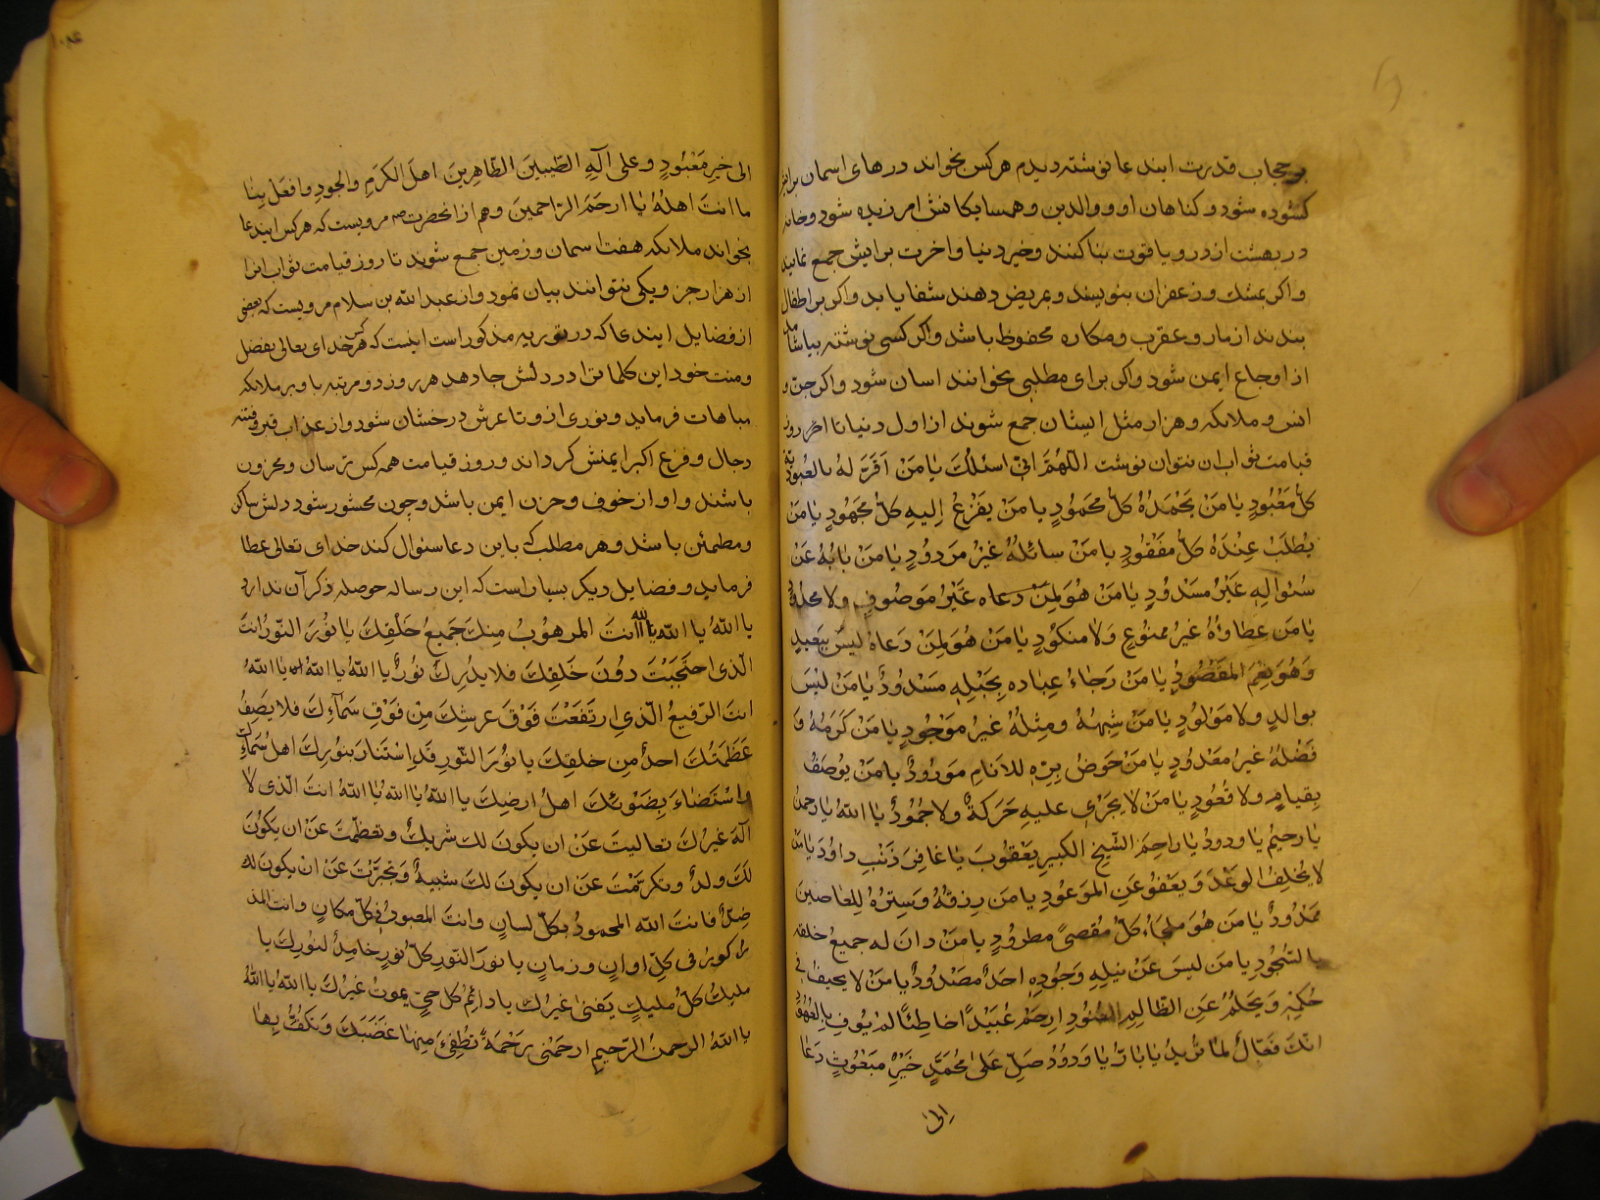 بر حجاب قدرت ایندعا نوشته دیدم هرکس بخواند درهای اسمان برایش
کشوده شود و کناهان او و والدین و همسایکانش امرزیده شود و خانه
در بهشت از در و یاقوت بنا کنند و خیر دنیا و اخرت برایش جمع نمایند
و اکر بمشک و زعفران بنویسند و بمریض دهند شفا یابد و اکر بر اطفال
بندند از مار و عقرب و مکاره محفوظ باشد و اکر کسی نوشته بیاشامد
از اوجاع ایمن شود و اکر برای مطلبی بخوانند اسان شود و اکر جن و
انس و ملائکه و هزار مثل ایشان جمع شوند از اول دنیا تا اخر روز
قیامت ثواب ان نتوان نوشت اللهُمَّ انّی اسئلُکَ یا مَنْ اَقَرَّ لهُ بالعُبودیّة
کلُّ مَعْبُودٍ یا مَنْ یَحْمَدُهُ کلُّ مَحمُودٍ یا مَنْ یفَزعُ اِلیهِ کلُّ مَجهُودٍ یا مَن
یُطلَبُ عِنْدَهُ کلُّ مَفْقُودٍ یا مَنْ سائلُهُ غیرُ مَردُودٍ یا مَنْ بابُهُ عَنْ
سُئوالِهِ غَیْرُ مَسْدُودٍ یا مَنْ هُوَ لِمَنْ دعاه غَیْرُ مَوصُوفٍ ولا محدُود
یا مَن عَطاؤُهُ غیرُ ممنُوعٍ وَلا منکُودٍ یا مَنْ هُوَ لِمَنْ دَعاهُ لیسَ ببَعیدٍ
وَهُوَ نِعْمَ المَقصُودُ یا مَنْ رَجاءُ عِباده بِحَبْلِهِ مَسْدُودٌ یا مَنْ لیسَ
بوالدٍ ولا مَولُودٍ یا مَنْ شِبهُهُ ومِثلُهُ غیرُ مَوْجُودٍ یا مَنْ کَرَمُهُ وَ
فَضْلُهُ غیرُ مَعْدُودٍ یا مَنْ حَوضُ بِرّهِ للاَنامِ مَورُودٌ یا مَنْ یُوصَفُ
بِقیامٍ ولا قُعُودٍ یا مَنْ لا یَجرْی علیهِ حَرَکةٌ ولا جُمُودٌ یا اللهُ یا رحمنُ
یا رحیمُ یا ودودُ یا راحِمَ الشّیخِ الکبیرِ یَعْقوُبَ یا غافِرَ ذَنْبِ داوُدَ یا مَنْ
لا یُخلِفُ الوعْدَ وَیَعْفوُ عَنِ المَوعُودِ یا مَن رِزقُهُ وَسِترُهُ لِلعاصینَ
مَمدُودٌ یا مَن هُوَ مَلجَاءُ کلِّ مُقصیً مَطرودٍ یا مَنْ دانَ له جمیعُ خلقه
بالسُّجُودِ یا مَن لیسَ عَنْ نیلِهِ وَجُودِهِ احَدٌ مَصْدُودٌ یا مَنْ لا یحیفُ فی
حُکمِهِ وَیَحلُمُ عَنِ الظّالِمِ العَنُودِ ارحَمْ عُبَیْداً خاطِئاً لم یُوفِ بِالعُهُودِ
انّکَ فَعّالٌ لما تُریدُ یا بارُّ یا وَدودُ صَلِّ عَلی مُحمّدٍ خَیْرِ مَبعُوثٍ دَعا
اِلیٰ
الی خیرِ مَعْبُودٍ وعلی آلِهِ الطّیبینَ الطّاهِرینَ اهلَ الکَرَمِ والجودِ وافعَل بِنا
ما انتَ اهلُهُ یا ارحَمَ الرّاحمینَ وهم از انحضرت ص مرویست که هرکس ایندعا
بخواند ملائکه هفت اسمان و زمین جمع شوند تا روز قیامت ثواب انرا
از هزار جزو یکی نتوانند بیان نمود و از عبدالله بن سلام مرویست که بعضی
از فضایل ایندعا که در توریه مذکور است اینست که هرکس خدای تعالی بفضل
و منت خود این کلماترا در دلش جا دهد هر روز دو مرتبه با و بر ملائکه
مباهات فرماید و نوری از و تا عرش درخشان شود و از عذاب قبر و فتنه
دجال و فزع اکبر ایمنش کرداند و روز قیامت همه کس ترسان و محزون
باشند و او از خوف و حزن ایمن باشد و چون محشور شود دلش ساکن
و مطمئن باشد و هر مطلب که باین دعا سئوال کند خدای تعالی عطا
فرماید و فضایل دیکر بسیار است که این رساله حوصله ذکر آن ندارد
یا اللهُ یا الله یا الله انتَ المرهوُبُ مِنکَ جَمیعُ خَلْقِکَ یا نوُرَ النّورِ انتَ
الّذی احتَجَبْتَ دوُنَ خَلقِکَ فلا یدُرِکُ نوُرٌ یا اللهُ یا اللهُ یا اللهُ
انتَ الرّفیعُ الّذی ارتَفَعْتَ فَوْقَ عَرشِکَ مِنْ فَوْقِ سَمآءِکَ فلا یصِفُ
عَظَمَتُکَ احدٌ مِن خلقِکَ یا نوُرَ النّورِ قَدِ اسْتَنارَ بنُورِکَ اهلُ سَمآئِکَ
واسْتَضاءَ بِضَوئکَ اهلُ ارضِکَ یا اللهُ یا اللهُ یا اللهُ انتَ الّذی لا
آلهَ غیرُکَ تعالیتَ عَنْ ان یکونَ لک شریکٌ وتعَظّمتَ عَنْ ان یکوُنَ
لَکَ ولدٌ وتکرّمْتَ عَنْ ان یکونَ لکَ شبیهٌ وَتجَبّرْتَ عَنْ انْ یکونَ لک
ضِدٌّ فانتَ الله المحمودُ بکلِّ لسانٍ وانتَ المعبودُ فی کلِّ مکانٍ وانت المذ
کورُ فی کلِّ اوانٍ وزمانٍ یا نورَ النّورِ کلّ نورٍ خامِدٌ لنورِکَ یا
ملیکُ کلُّ مُلیکٍ یَفنی غیرُک یا دائمُ کل حیٍّ یموتُ غیرُکَ یا اللهُ یا اللهُ
یا اللهُ الرحمنُ الرّحیمُ ارحَمْنی رَحْمَةً تُطْفِیُ مِنها غَضَبَکَ وَتَکفُّ بِها